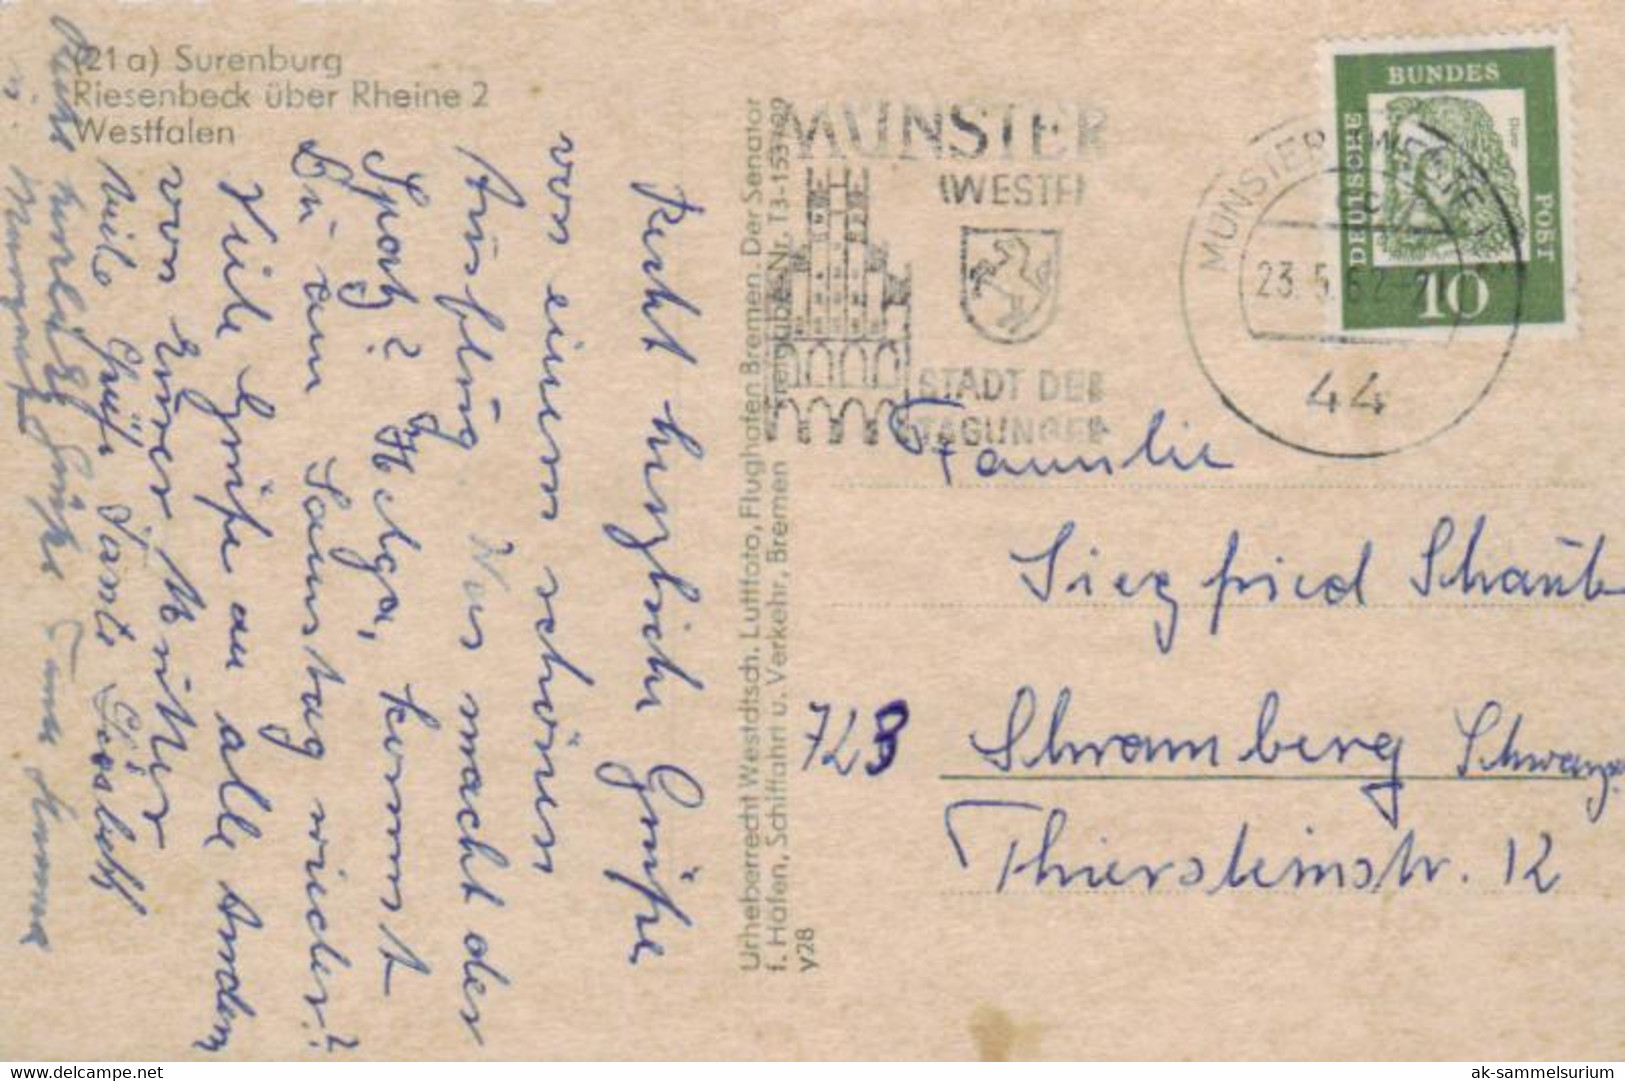 (21a) Surenburg
Riesenbeck über Rheine 2
Westfalen
Recht herzliche Grüße
von einem schönen
Ausflug. Was macht der
Spatz? Helga, kommst
Du am Samstag wieder?
Viele Grüße an alle Andern
von Eurer Mutter
viele Grüße Tante
Auch herzliche Grüße
Urheberrecht Westdtsch. Luftfoto, Flughafen Bremen. Der Senator
f. Häfen, Schiffahrt u. Verkehr, Bremen Freigabe-Nr. T3-153799
y28
MÜNSTER
(WESTF)
STADT DER
TAGUNGEN
MÜNSTER (WESTF)
23.5.62
44
DEUTSCHE
BUNDES
POST
Dürer
10
Familie
Siegfried Schaub
723 Schramberg Schwarzw.
Thiersteinstr. 12
ak-sammelsurium